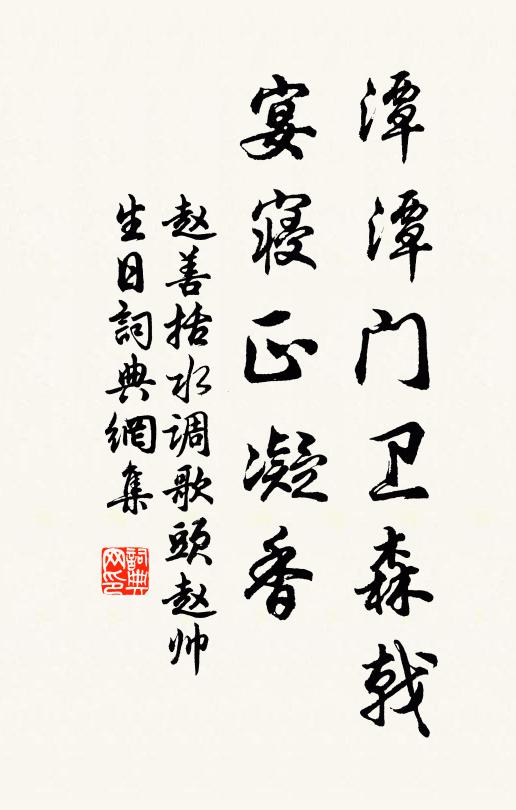 潭潭门卫森戟
宴寝正凝香
赵善括水调歌头赵帅
生日词典網集
詞典网印